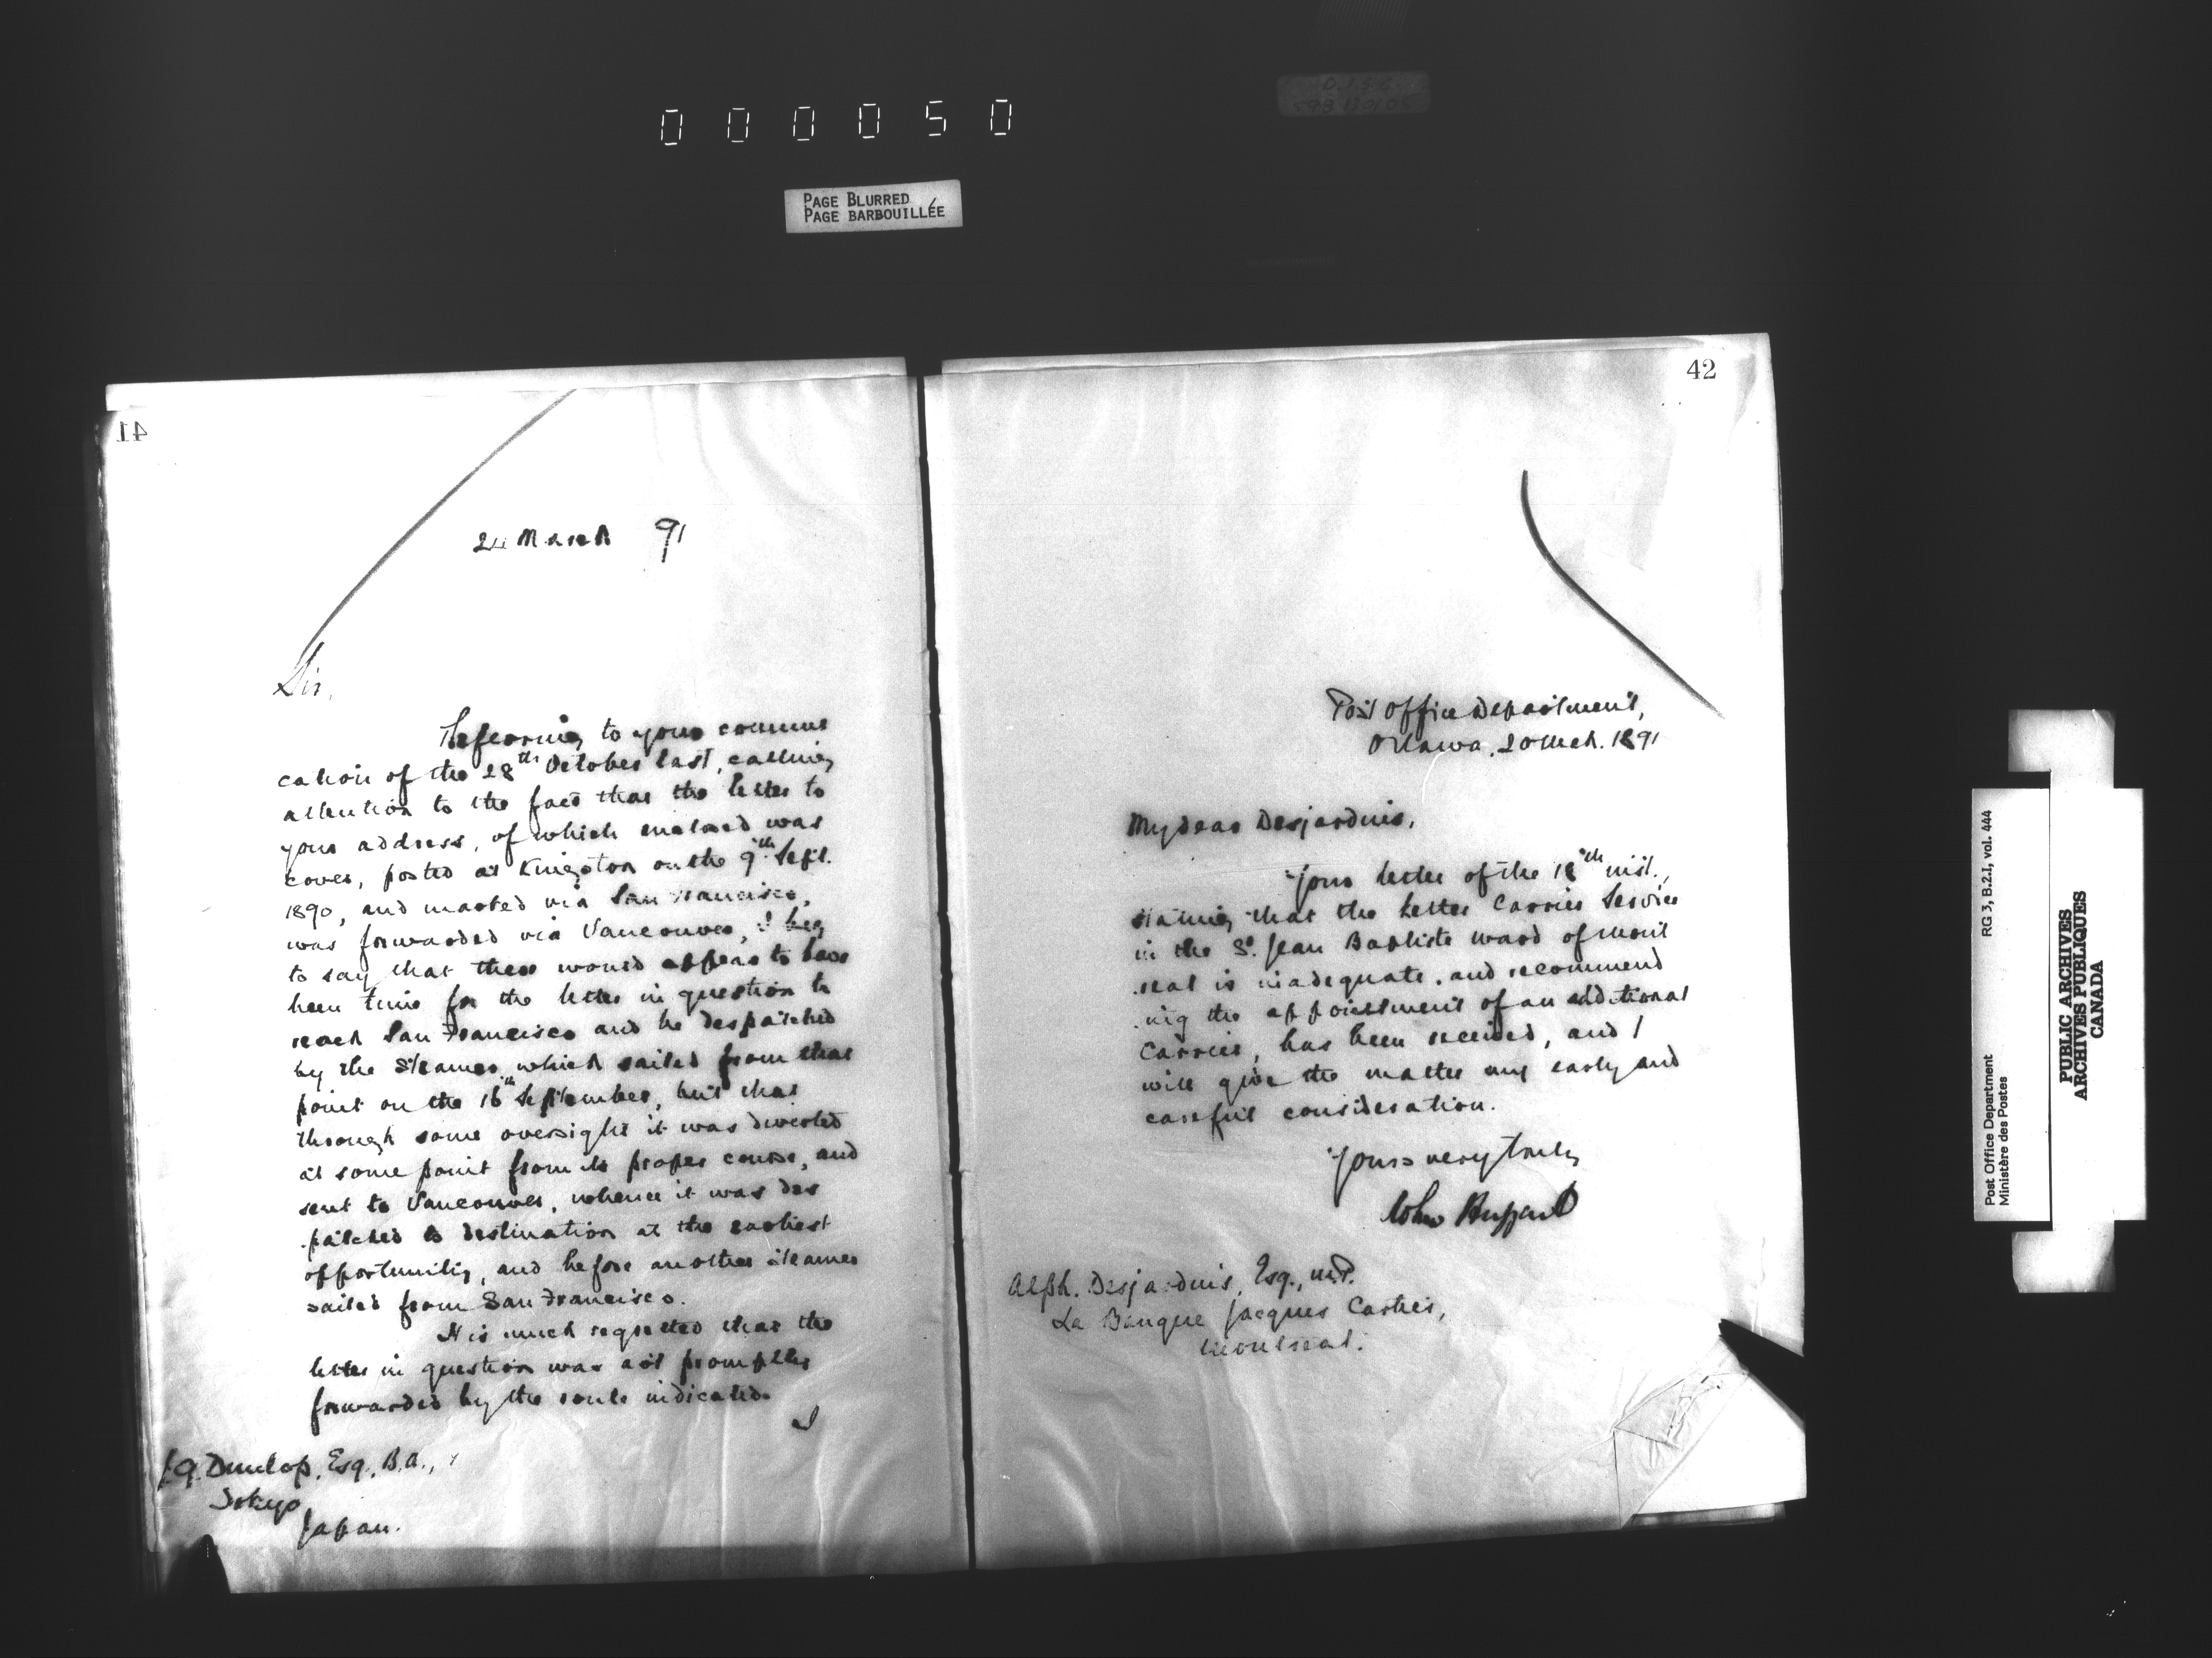 000050
PAGE BLURRED
PAGE BARBOUILLÉE
41
24 March 91
Sir,
Referring to your communi
cation of the 28th October last, calling
attention to the fact that the letter to
your address, of which enclosed was
cover, posted at Kingston on the 9th Sept.
1890, and marked via San Francisco,
was forwarded via Vancouver, I beg
to say that there would appear to have
been time for the letter in question to
reach San Francisco and be despatched
by the Steamer which sailed from that
point on the 16th September, but that
through some oversight it was diverted
at some point from its proper course, and
sent to Vancouver, whence it was des
patched to destination at the earliest
opportunity, and before another steamer
sailed from San Francisco.
It is much regretted that the
letter in question was not promptly
forwarded by the route indicated.
I
Dunlop, Esq., B.A.,
Tokyo
Japan.
42
Post Office Department,
Ottawa, 20 Mch. 1891
My dear Desjardins,
Your letter of the 18th inst.,
stating that the Letter Carrier Service
in the St. Jean Baptiste ward of Mont
real is inadequate, and recommend
ing the appointment of an additional
Carrier, has been received, and I
will give the matter my early and
careful consideration.
Yours very truly
John Haggart
Alph. Desjardins, Esq., M.P.
La Banque Jacques Cartier,
Montreal.
Post Office Department
Ministère des Postes
RG 3, B.2.I, vol. 444
PUBLIC ARCHIVES
ARCHIVES PUBLIQUES
CANADA